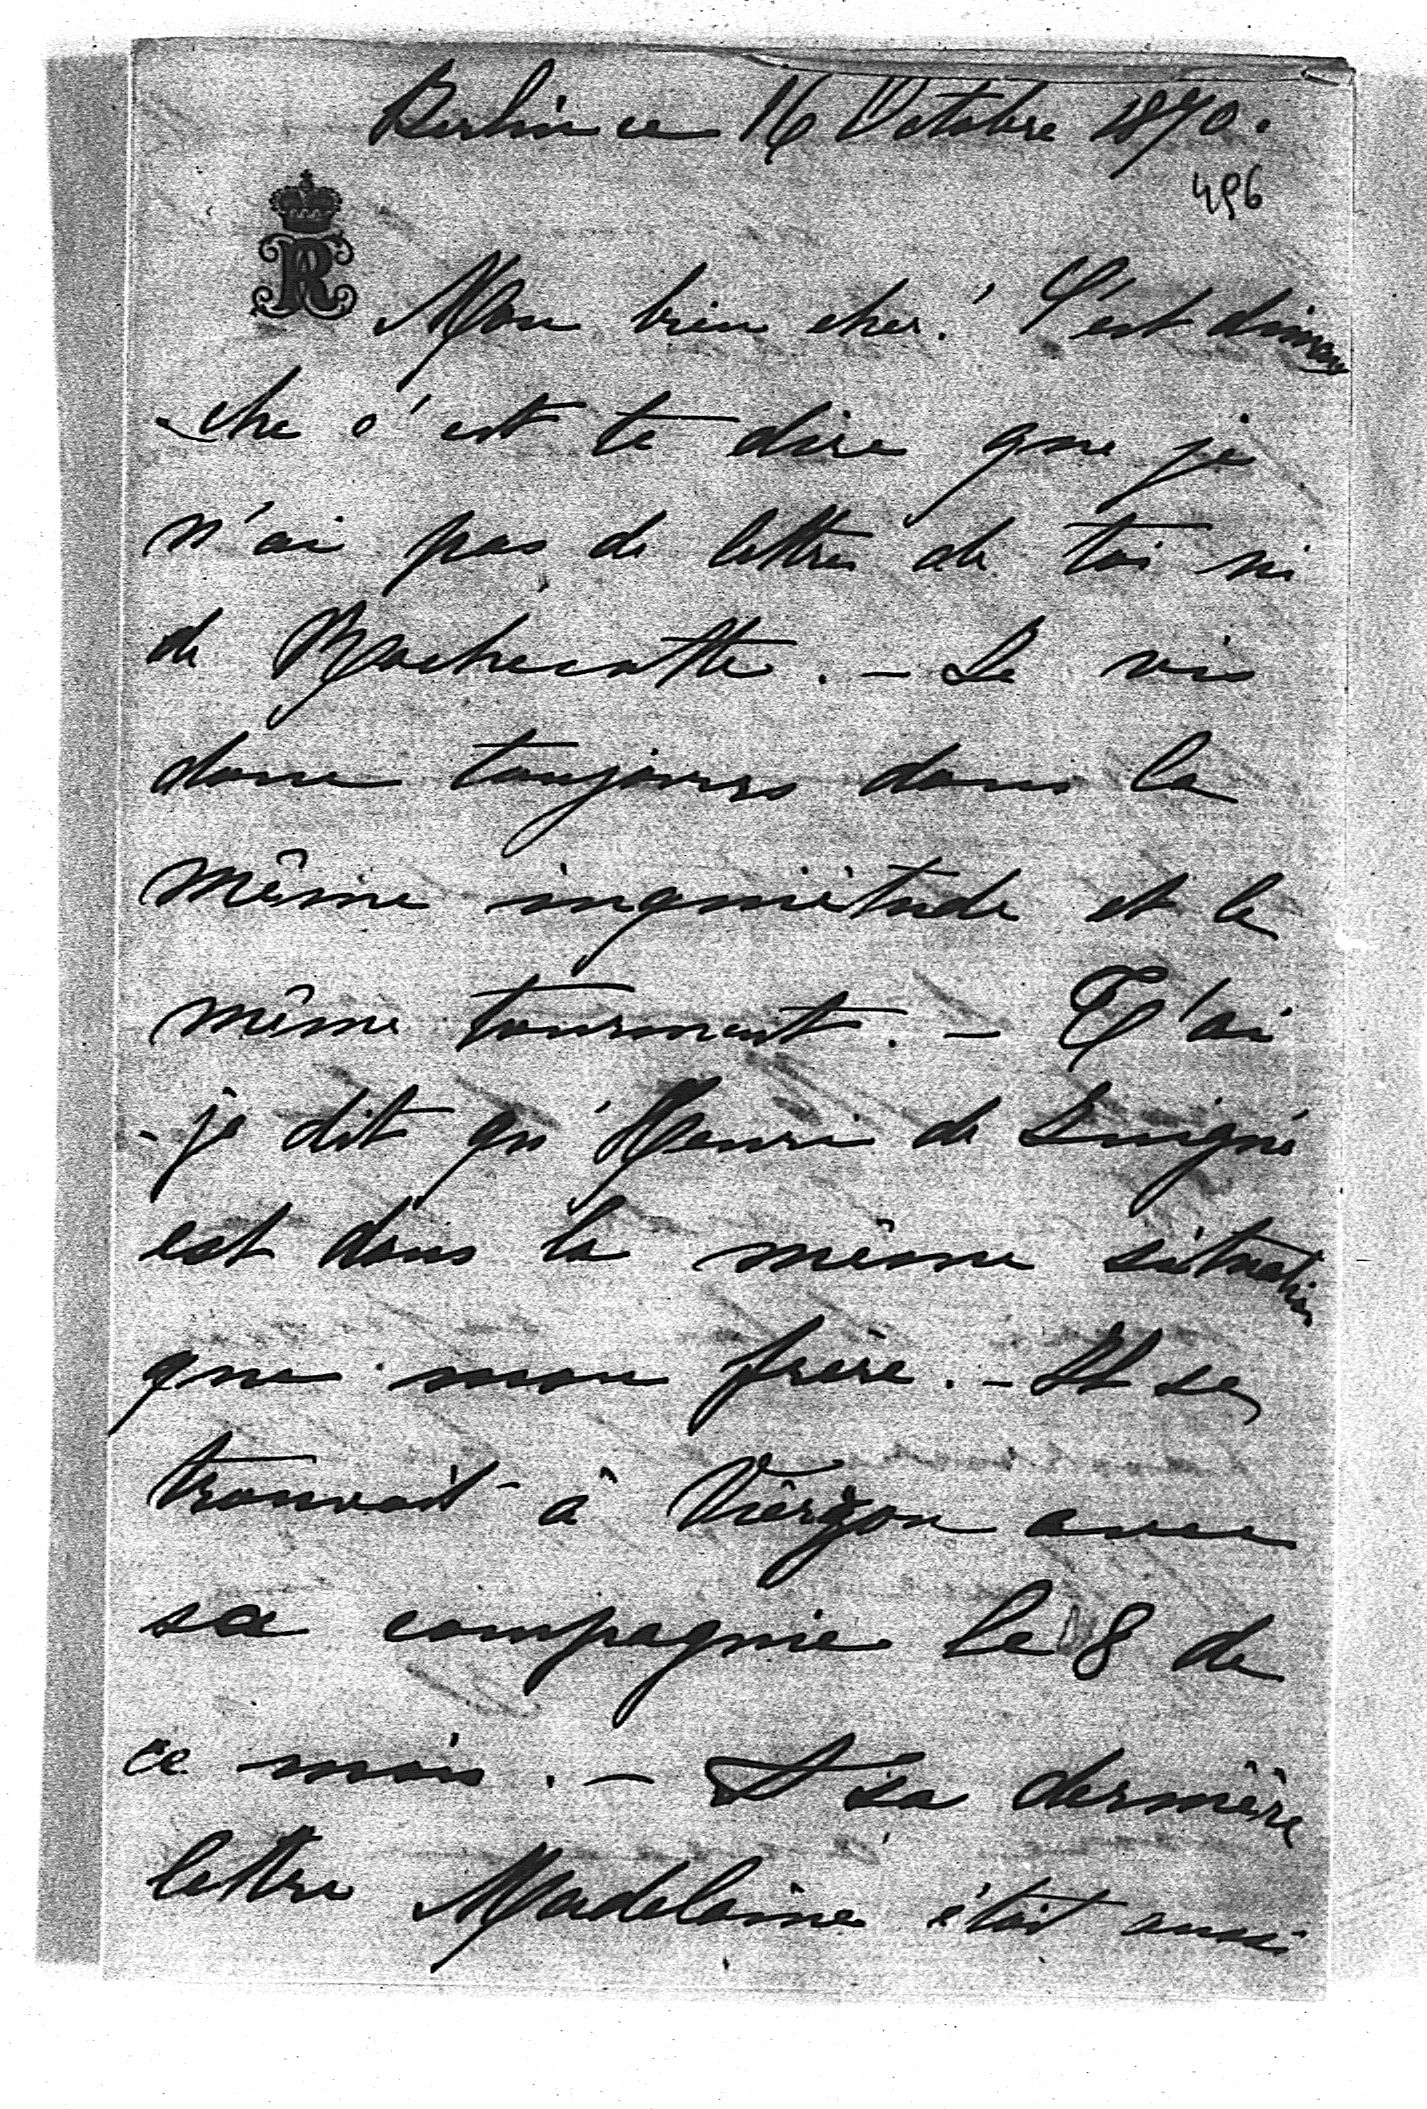 Berlin ce 16 Octobre 1870.
496
R
Mon bien cher! C'est diman
-che c'est te dire que je
n'ai pas de lettre de toi ni
de Rochecotte. - Je vis
donc toujours dans la
même inquiétude et le
même tourment. - T'ai
-je dit qu'Henri de
est dans la même situation
que mon frère. - Il se
trouvait à Vierzon avec
sa compagnie le 8 de
ce mois. - sa dernière
lettre Madelaine était aussi